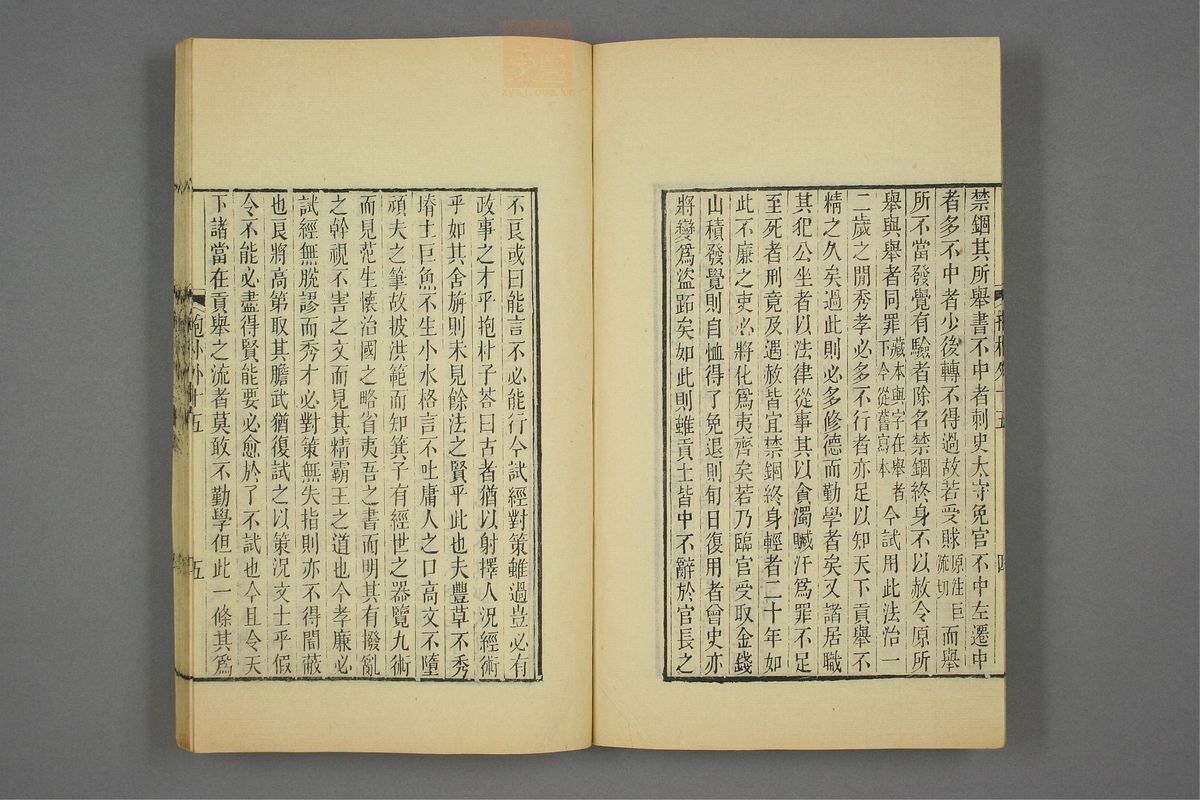 禁錮其所舉書不中者刺史太守免官不中左遷中
者多不中者少後轉不得過故若受賕原注巨流切而舉
所不當發覺有驗者除名禁錮終身不以赦令原所
舉與舉者同罪藏本與字在舉者下今從舊寫本今試用此法治一
二歲之閒秀孝必多不行者亦足以知天下貢舉不
精之久矣過此則必多修德而勤學者矣又諸居職
其犯公坐者以法律從事其以貪濁贓汙爲罪不足
至死者刑竟及遇赦皆宜禁錮終身輕者二十年如
此不廉之吏必將化爲夷齊矣若乃臨官受取金錢
山積發覺則自恤得了免退則旬日復用者曾史亦
將變爲盜跖矣如此則雖貢士皆中不辭於官長之
不良或曰能言不必能行今試經對策雖過豈必有
政事之才乎抱朴子荅曰古者猶以射擇人況經術
乎如其舍旃則未見餘法之賢乎此也夫豐草不秀
塉土巨魚不生小水格言不吐庸人之口高文不墮
頑夫之筆故披洪範而知箕子有經世之器覽九術
而見范生懷治國之略省夷吾之書而明其有撥亂
之幹視不害之文而見其精霸王之道也今孝廉必
試經無脫謬而秀才必對策無失指則亦不得闇蔽
也良將高第取其膽武猶復試之以策況文士乎假
令不能必盡得賢能要必愈於了不試也今且令天
下諸當在貢舉之流者莫敢不勤學但此一條其爲
抱朴外十五
五